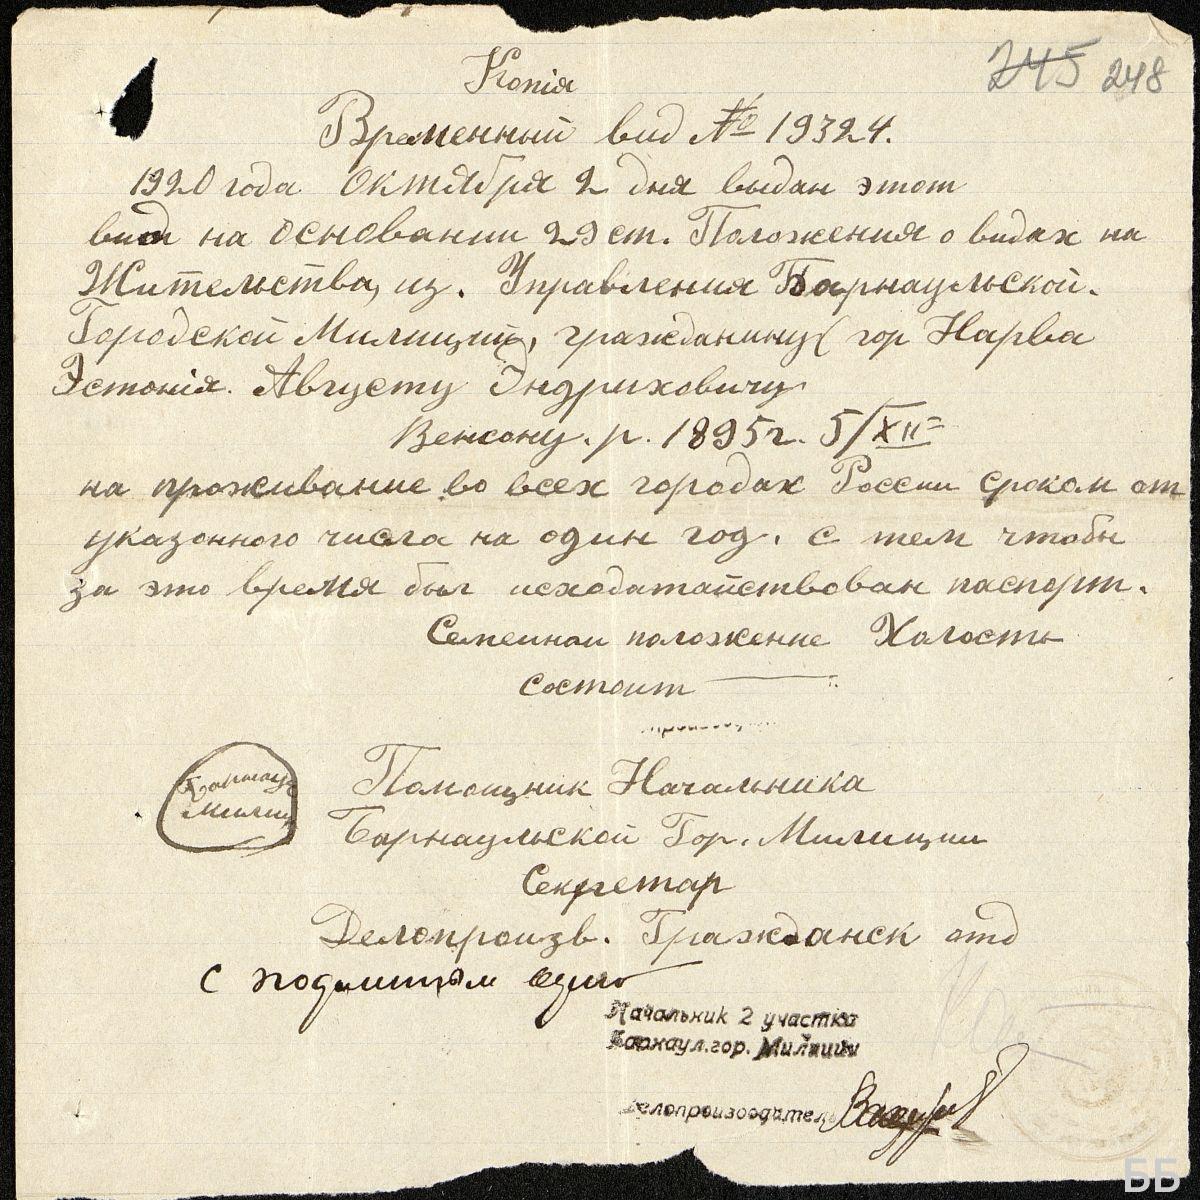 245 248
Копія
Временный вид № 19324.
1920 года Октября 2 дня выдан этот
вид на основании 29 ст. Положения о видах на
Жительства, из. Управления Барнаульской.
Городской Милиции, гражданину гор Нарва
Эстонія. Августу Эндриховичу
Венсону. р. 1895 г. 5/XII
на проживание во всех городах России сроком от
указонного числа на один год. с тем чтобы
за это время был исходатайствован паспорт.
Семейной положение Холость
состоит
Барнаул
Милиц
Помощник Начальника
Барнаульской Гор. Милиции
Секретар
Делопроизв. Гражданск отд
с подлиным
Начальник 2 участка
Барнаул.гор. Милиции
Делопроизводитель
ББ